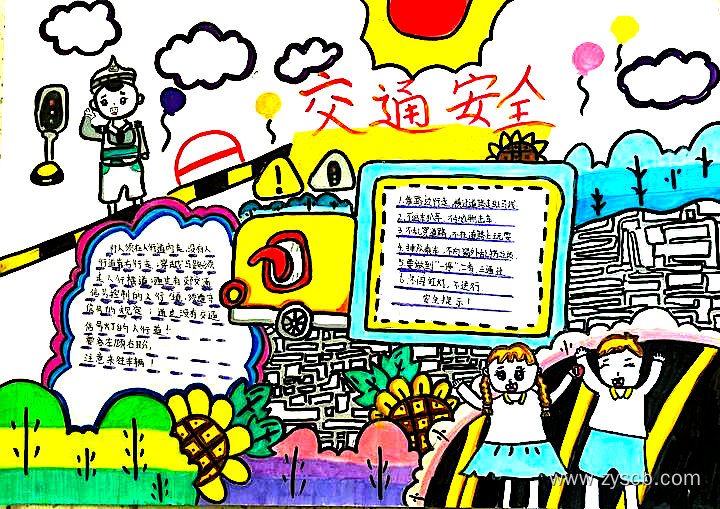 交通安全
行人须在人行道内走,没有人
行道靠右行走;穿越马路须
走人行横道;通过有交通
信号控制的人行道,须遵守
信号的规定;通过没有交通
信号灯的人行道!
要左顾右盼,
注意来往车辆!
1.靠路边行走,横过道路走斑马线
3.不乱穿道路,不在道路上玩耍
5.要做到"一停"二看三通过
6.不闯红灯,不逆行
安全提示!
www.zyscb.com